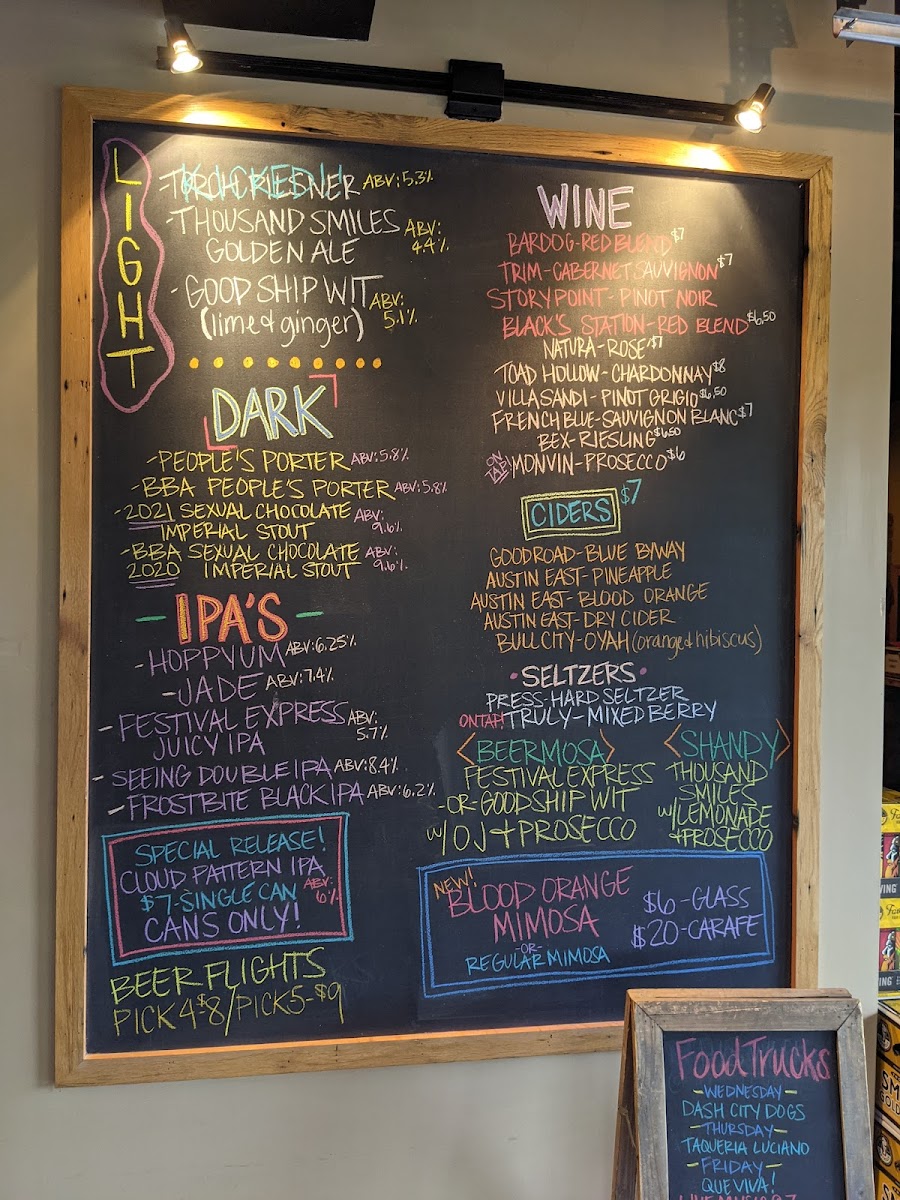 LIGHT
-TORCH PILSNER ABV:5.3%
-THOUSAND SMILES
GOLDEN ALE ABV: 4.4%
-GOOD SHIP WIT
(lime & ginger) ABV: 5.1%
DARK
-PEOPLE'S PORTER ABV:5.8%
-BBA PEOPLE'S PORTER ABV:5.8%
-2021 SEXUAL CHOCOLATE
IMPERIAL STOUT ABV: 9.6%
-BBA SEXUAL CHOCOLATE
2020 IMPERIAL STOUT ABV: 9.6%
-IPA'S-
-HOPPYUM ABV:6.25%
-JADE ABV:7.4%
-FESTIVAL EXPRESS
JUICY IPA ABV: 5.7%
-SEEING DOUBLE IPA ABV:8.4%
-FROSTBITE BLACK IPA ABV:6.2%
SPECIAL RELEASE!
CLOUD PATTERN IPA
$7-SINGLE CAN ABV: 6%
CANS ONLY!
BEER FLIGHTS
PICK 4-$8/PICK 5-$9
WINE
BARDOG-RED BLEND $7
TRIM-CABERNET SAUVIGNON $7
STORY POINT-PINOT NOIR
BLACK'S STATION-RED BLEND $6.50
NATURA-ROSE $7
TOAD HOLLOW-CHARDONNAY $8
VILLA SANDI-PINOT GRIGIO $6.50
FRENCH BLUE-SAUVIGNON BLANC $7
BEX-RIESLING $6.50
ON TAP! MONVIN-PROSECCO $6
CIDERS $7
GOODROAD-BLUE BYWAY
AUSTIN EAST-PINEAPPLE
AUSTIN EAST-BLOOD ORANGE
AUSTIN EAST-DRY CIDER
BULL CITY-OYAH (orange & hibiscus)
•SELTZERS•
PRESS-HARD SELTZER
ON TAP! TRULY-MIXED BERRY
<BEERMOSA>
FESTIVAL EXPRESS
-OR-GOOD SHIP WIT
w/ OJ + PROSECCO
<SHANDY>
THOUSAND
SMILES
w/LEMONADE
+PROSECCO
NEW!
BLOOD ORANGE
MIMOSA
-OR-
REGULAR MIMOSA
$6-GLASS
$20-CARAFE
Food Trucks
-WEDNESDAY-
DASH CITY DOGS
-THURSDAY-
TAQUERIA LUCIANO
-FRIDAY-
QUE VIVA!